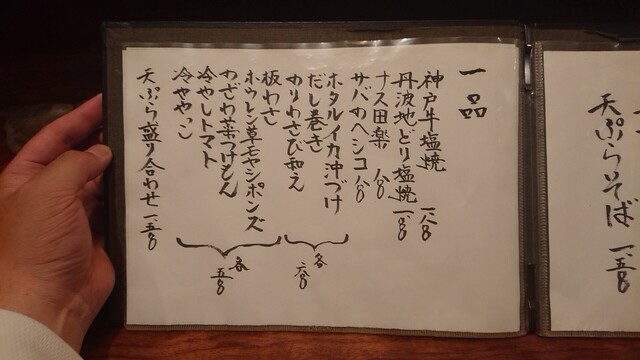 天ぷらそば 一五〇〇
一品
神戸牛塩焼 一八〇〇
丹波地どり塩焼 一八〇〇
ナス田楽 八〇〇
サバのヘシコ 八〇〇
ホタルイカ沖づけ
だし巻き
のりわさび和え
各 六〇〇
板わさ
ホウレン草モヤシポンズ
のざわ菜つけもん
冷やしトマト
冷ややっこ
各 五〇〇
天ぷら盛り合わせ 一五〇〇